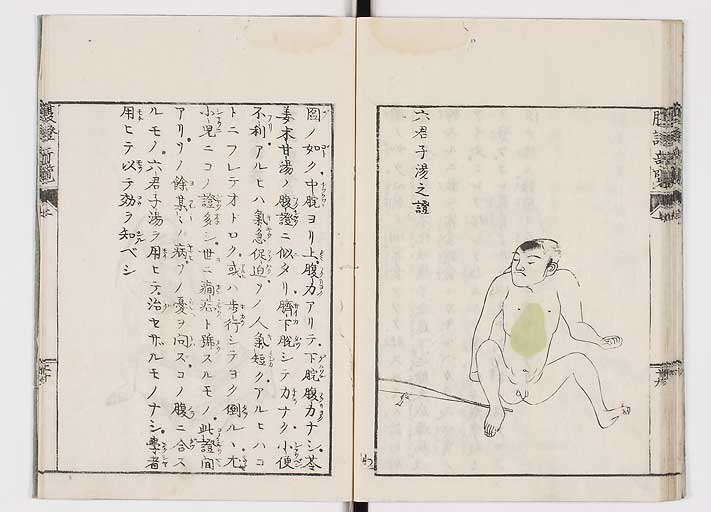 腹證奇覧
六君子湯之證
図ノ如ク中脘ヨリ上腹力アリテ下脘腹力ナシ苓
姜朮甘湯ノ腹證ニ似タリ臍下脱シテカナク小便
不利アルヒハ氣急促迫ソノ人氣短クアルヒハコ
トニフレテオトロク或ハ歩行シテヨク倒ル丶尤
小児ニコノ證多シ世ニ癇症ト稱スルモノ此證間
アリソノ餘某々ノ病ソノ憂ヲ问スコノ腹ニ合ス
ルモノ六君子湯ヲ用ヒテ治セザルモノナシ學者
用ヒテ以テ効ヲ知ベシ
腹證奇覧